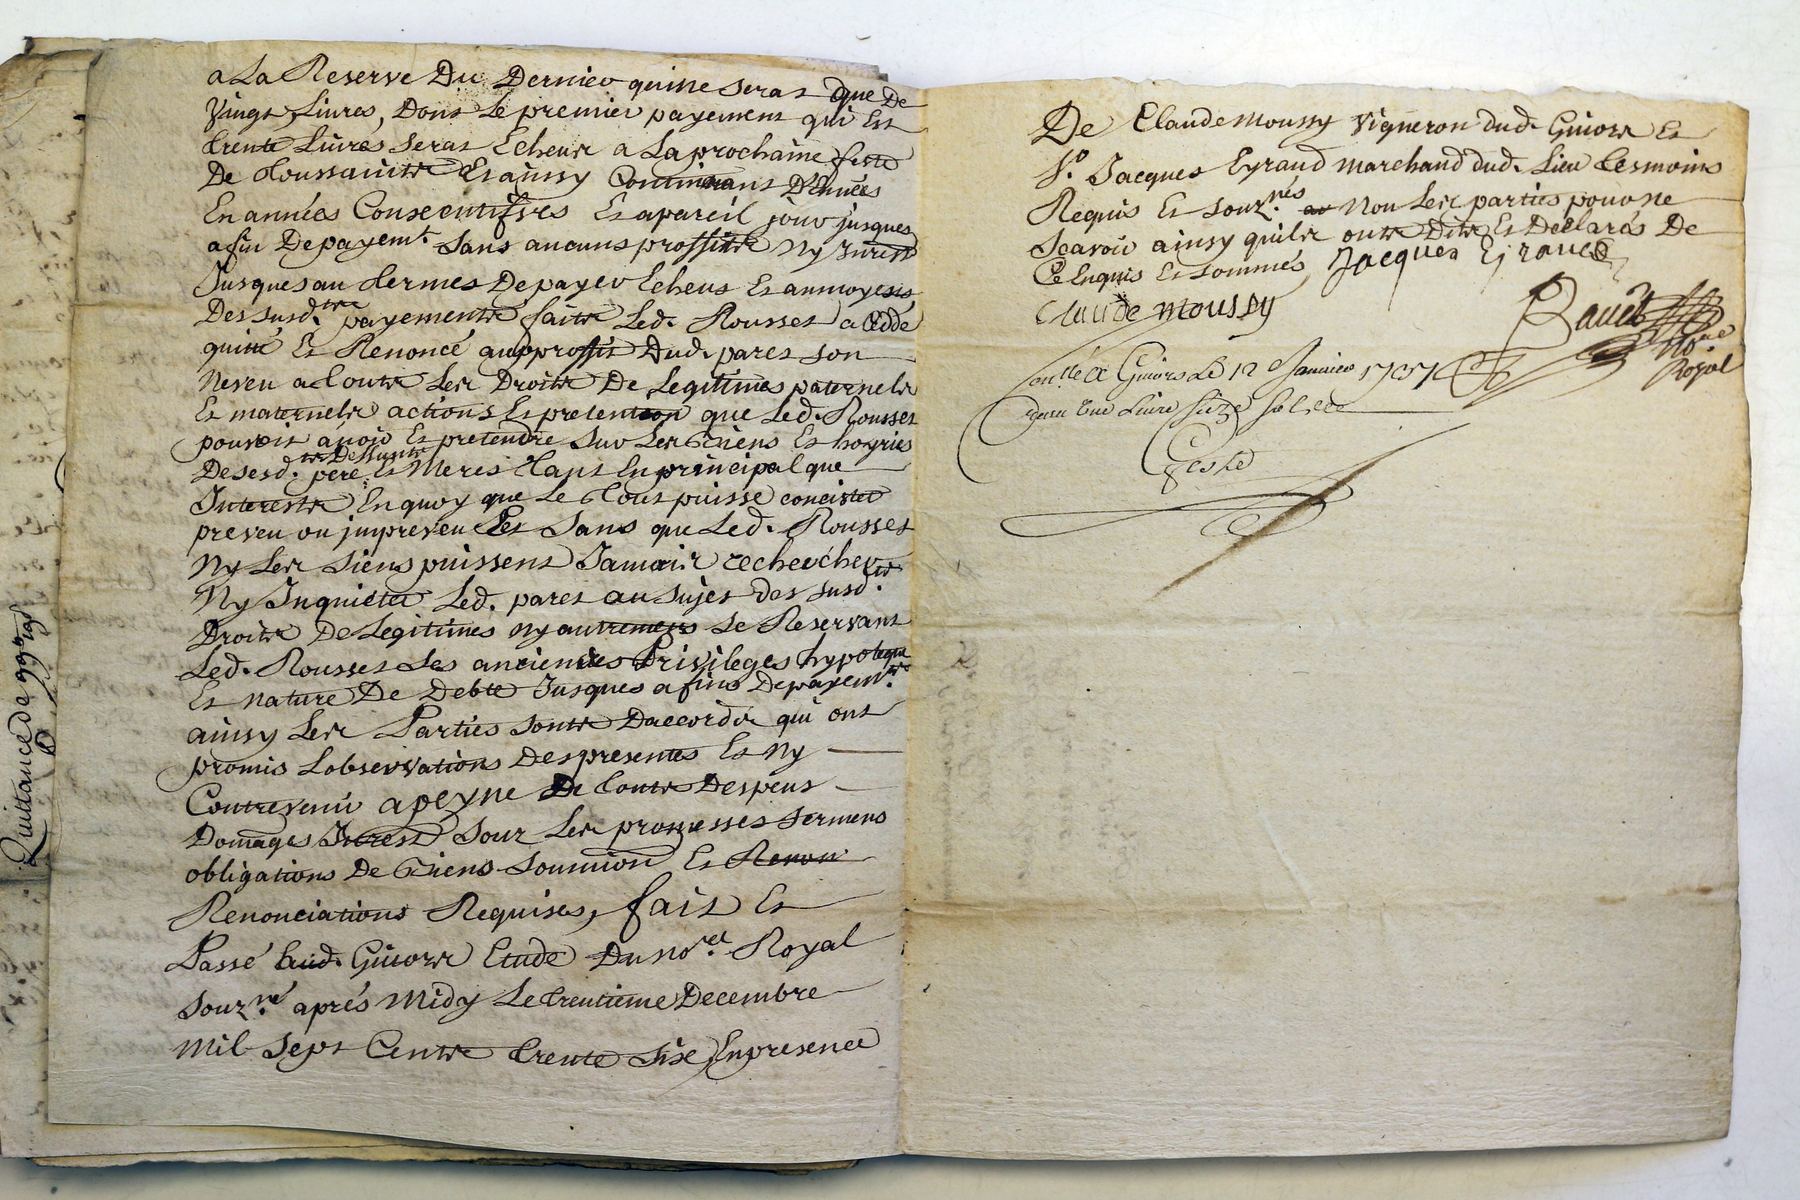 a La Reserve Du Dernier quine seras que De
Vingt Livres, Dont Le premier payement qui Est
trente Livres seras Echeux a La prochaine feste
De toussaintx Et ainsy Continuant D'année
En années Consecutifves Et apareil jour jusques
a fin Depayemt. sans aucuns proffitx Ny Interest
Jusques au termes Depayer Echeus Et aumoyens
Des susd.tes payementx faitx Led. Rousset a Cédé
quitté Et Renoncé au proffit Dud. paret son
Neveu a toutx Les Droitx De Legitimes paternelx
Et maternelx actions Et pretention que Led. Rousset
pouvoit avoir Et pretendre sur Les Biens Et hoyries
De sesd. père Et Meres Deffuntx tant En principal que
Interestx En quoy que Le tout puisse concister
preveu ou jmpreveu Et sans que Led. Rousset
Ny Les siens puissent Jamais rechercher
Ny Inquieter Led. paret au sujet des susd.tes
Droitx De Legitimes ny autrement se Reservant
Led. Rousset ses anciennes Privileges hypoteque
Et nature De Debte Jusques a fins Depayemts.
ainsy Les Parties sontx Daccordx qui ont
promis Lobservations Des presentes Et Ny
Contrevenir a peyne De toutx Despens
Domages Interest sour Les promesses sermens
obligations De Biens soumion Et Renon
Renonciations Requises, fait Et
Passé aud. Givors Etude Du nore. Royal
souzné. aprés Midy Le trentieme Decembre
Mil sept Centx trente sixe En presence
Quittance de
De Claude Moussy Vigneron dud. Givors Et
Sr. Jacques Eyraud Marchand dud. Lieu tesmoins
Requis Et souznés. Non Les parties pour ne
scavoir ainsy quilx ontx Ditx Et Déclarés De
Ce Enquis Et sommés Jacques Eyraud
Claude Moussy
Nore
Royal
Conllé a Givors Le 12 Janvier 1737
Reçu une Livre Seize sols